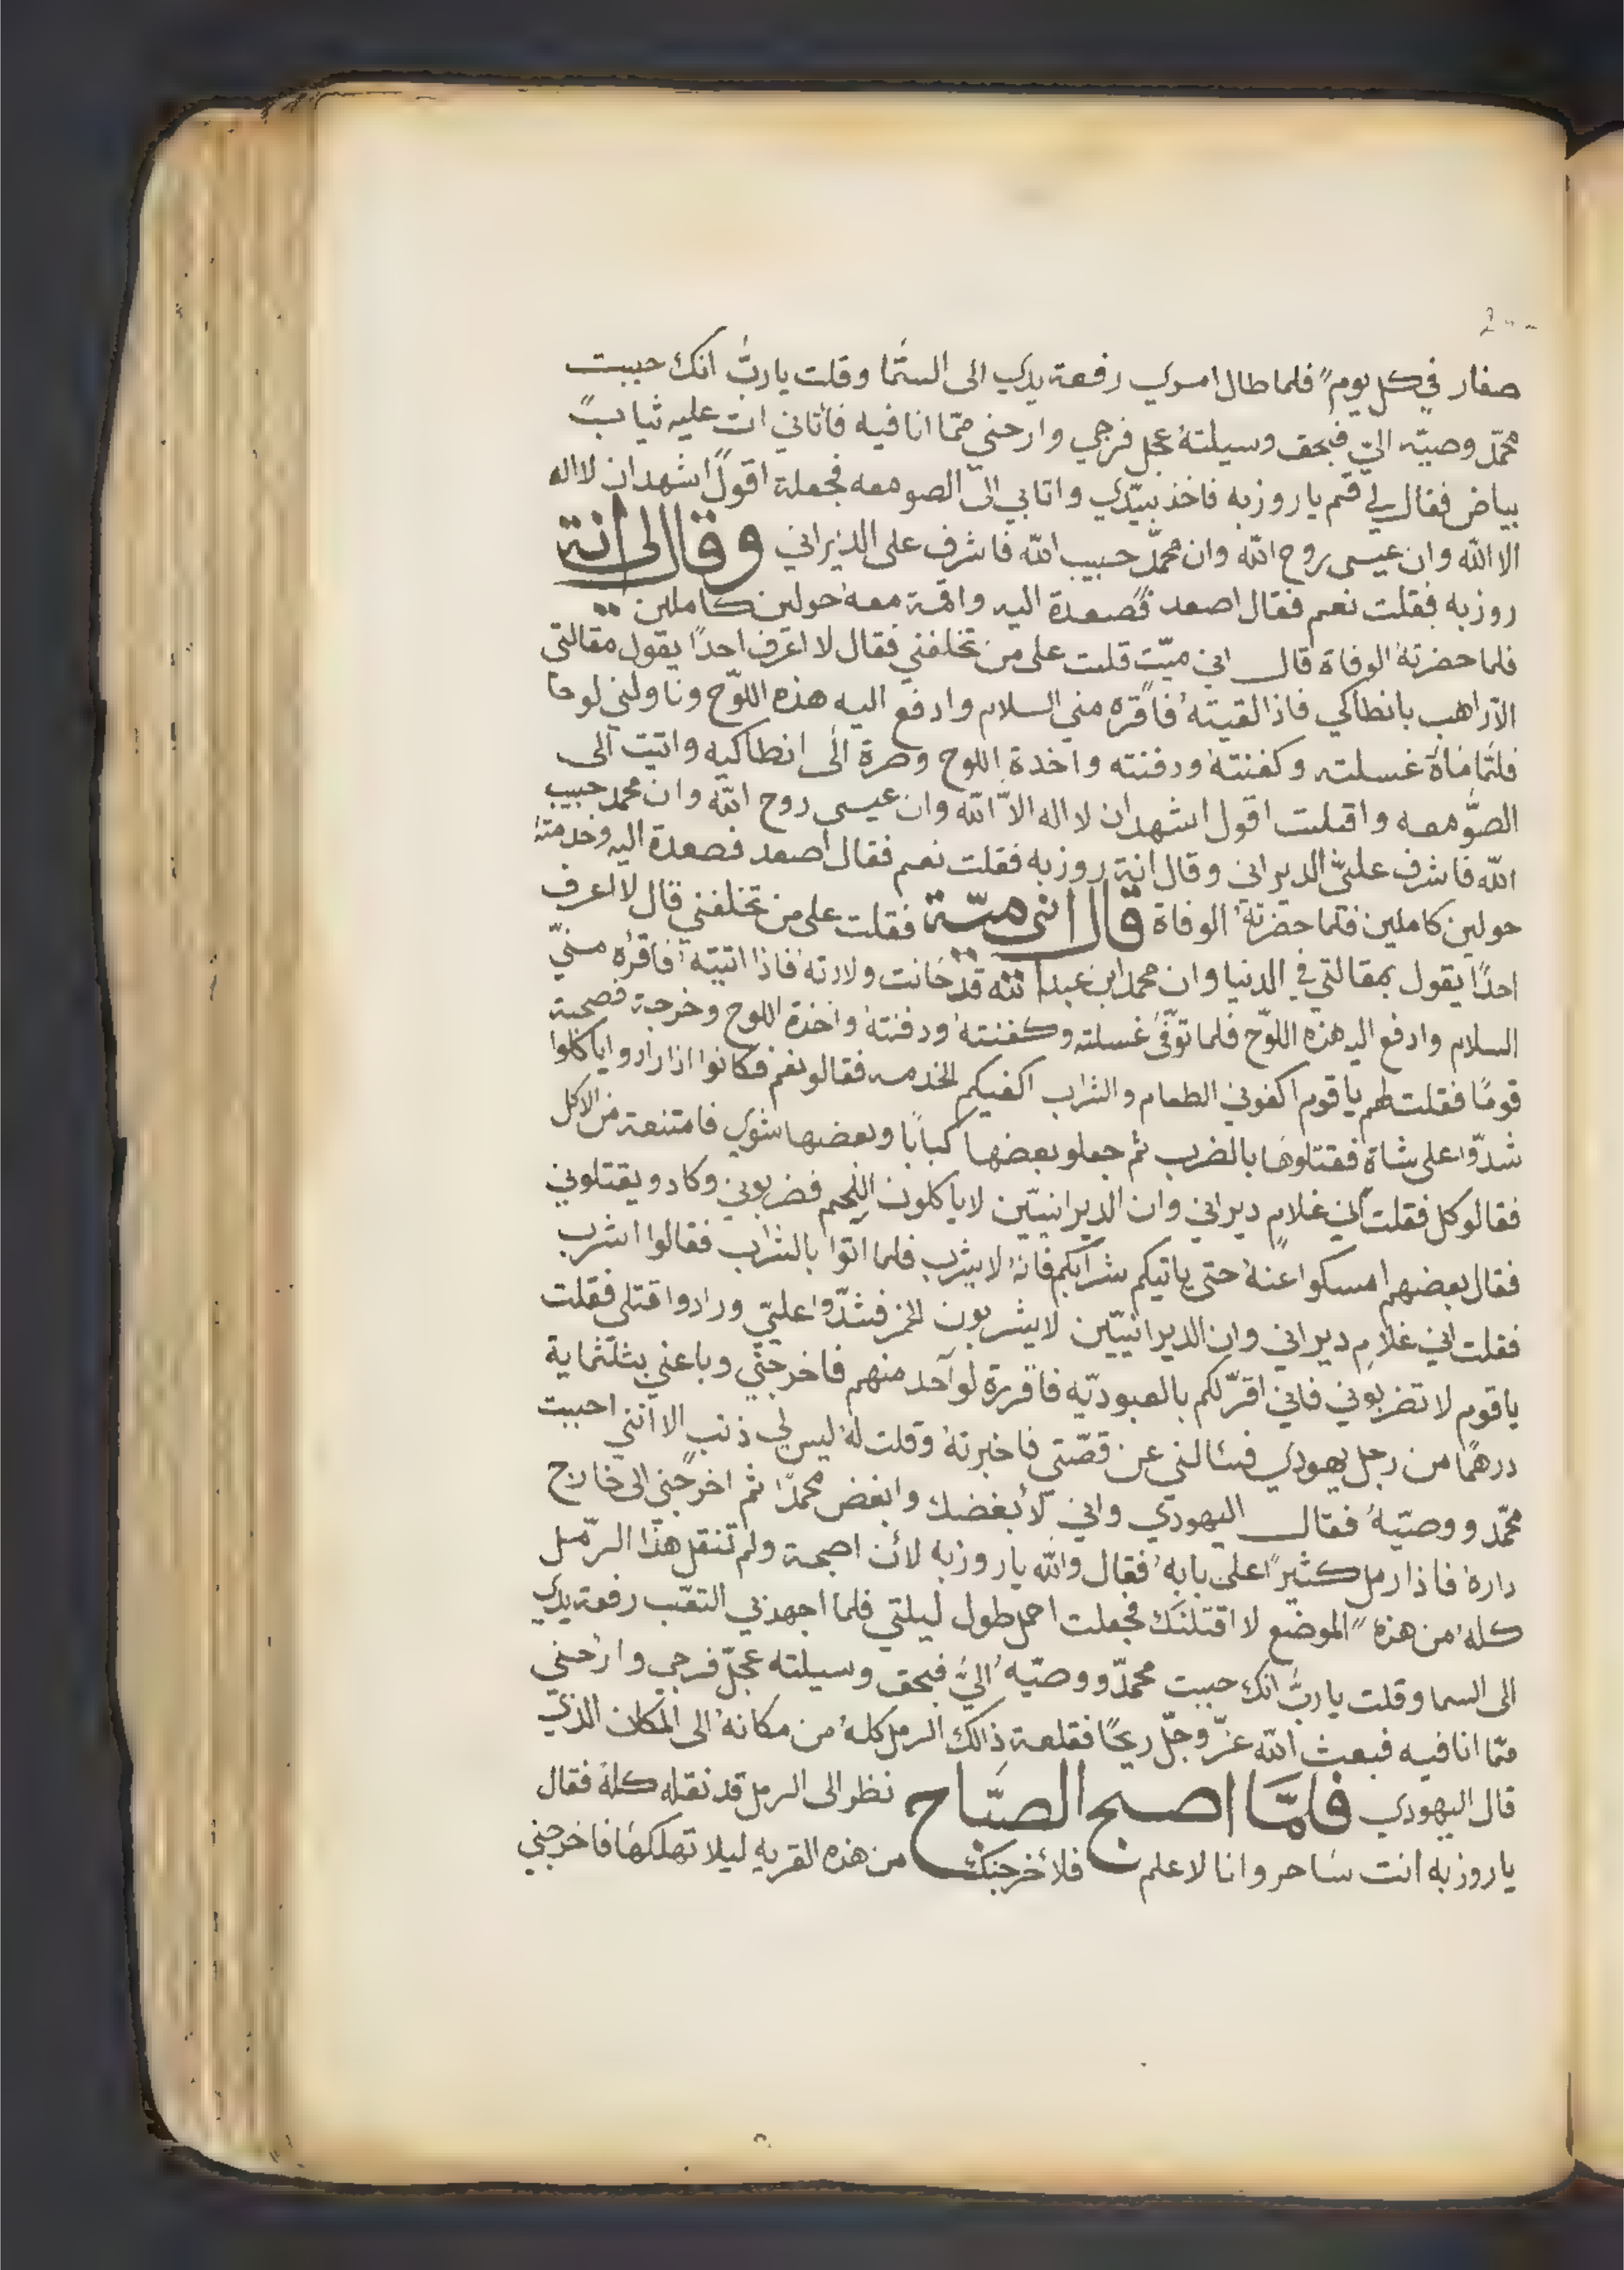 صغار في كل يوم فلما طال امري رفعة يدي الى السّما وقلت يا ربّ انك حببت
محمّد وصيّه اليّ فبحق وسيلتهُ عجل فرجي وارحني ممّا انا فيه فأتاني ات عليه ثيابً
بياض فقال لي قم يا روزبه فاخذ بيّدي واتابي الىّ الصومعه فجعلة اقولُ اشهد ان لا اله
الا الله وان عيسى روح الله وان محمّد حبيب الله فاشرف على الديراني وقال لي انة
روزبه فقلت نعم فقال اصعد فصعدة اليه واقمة معهُ حولين كاملين
فلما حضرتهُ الوفاة قال اني ميّت قلت على من تخلفني فقال لا اعرف احدًا يقول مقالتي
الاّ راهب بانطاكي فاذا لقيتهُ فاقره مني السلام وادفع اليه هذه اللوّح وناولني لوحا
فلمّا مٰاة غسلته وكفنتهُ ودفنته واخدة اللوح وصرة الى انطاكيه واتيت الى
الصّومعه واقبلت اقول اشهد ان لا اله الاّ الله وان عيسى روح الله وان محمد حبيب
الله فاشرف عليّ الديراني وقال انة روزبه فقلت نعم فقال اصعد فصعدة اليه وخدمتهُ
حولين كاملين فلما حضرتهُ الوفاة قال انى ميّة فقلت على من تخلفني قال لا اعرف
احدًا يقول بمقالتي في الدنيا وان محمد ابن عبد الله قد حانت ولادته فاذا اتيتهُ فاقرُه منيّ
السلام وادفع اليه هذه اللوّح فلما توّفىَ غسلته وكفنتهُ ودفنتهُ واخذة اللوح وخرجة فصحبة
قومًا فقلت لهم يا قوم اكفوني الطعام والشراب اكفيكم الخدمه فقالو نعم فكانوا اذا رادو اياكلوا
شدّوا على شاة فقتلوها بالضرب ثم جعلو بعضها كبابًا وبعضها شوي فامتنعة من الاكل
فقالو كل فقلت اني غلام ديراني وان الديرانييّن لا ياكلون اللحم فضربوني وكادو يقتلوني
فقال بعضهم امسكوا عنهُ حتى ياتيكم شرابكم فانهُ لا يشرب فلما اتوا بالشراب فقالوا اشرب
فقلت اني غلام ديراني وان الديرانييّن لا يشربون الخمر فشدّوا عليّ ورادوا قتلي فقلت
يا قوم لا تضربوني فاني اقرّ لكم بالعبوديّه فاقررة لواحد منهم فاخرجني وباعني بثلثماية
درهمًا من رجل يهودي فسالني عن قصّتي فاخبرتهُ وقلت لهُ ليس لي ذنب الا انني احببت
محمّد ووصيّهُ فقال اليهودي واني لأبغضك وابغض محمدًا ثم اخرجني الى خارج
دارهُ فاذا رمل كثيرًا على بابهِ فقال والله يا روزبه لان اصبحة ولم تنقل هذا الرّمل
كلهُ من هذه الموضع لاقتلنّك فجعلت احمل طول ليلتي فلما اجهدني التعّب رفعة يدي
الى السما وقلت يا ربّ انك حببت محمدّ ووصيّهُ اليّ فبحق وسيلته عجلّ فرجي وارحني
ممّا انا فيه فبعث الله عزّ وجلّ ريحًا فقلعة ذالك الرمل كلهُ من مكانهُ الى المكان الذي
قال اليهودي فلمّا اصبح الصبّاح نظر الى الرمل قد نقله كلهُ فقال
يا روزبه انت ساحر وانا لا علم فلاخرجنك من هذه القريه ليلا تهلكها فاخرجني